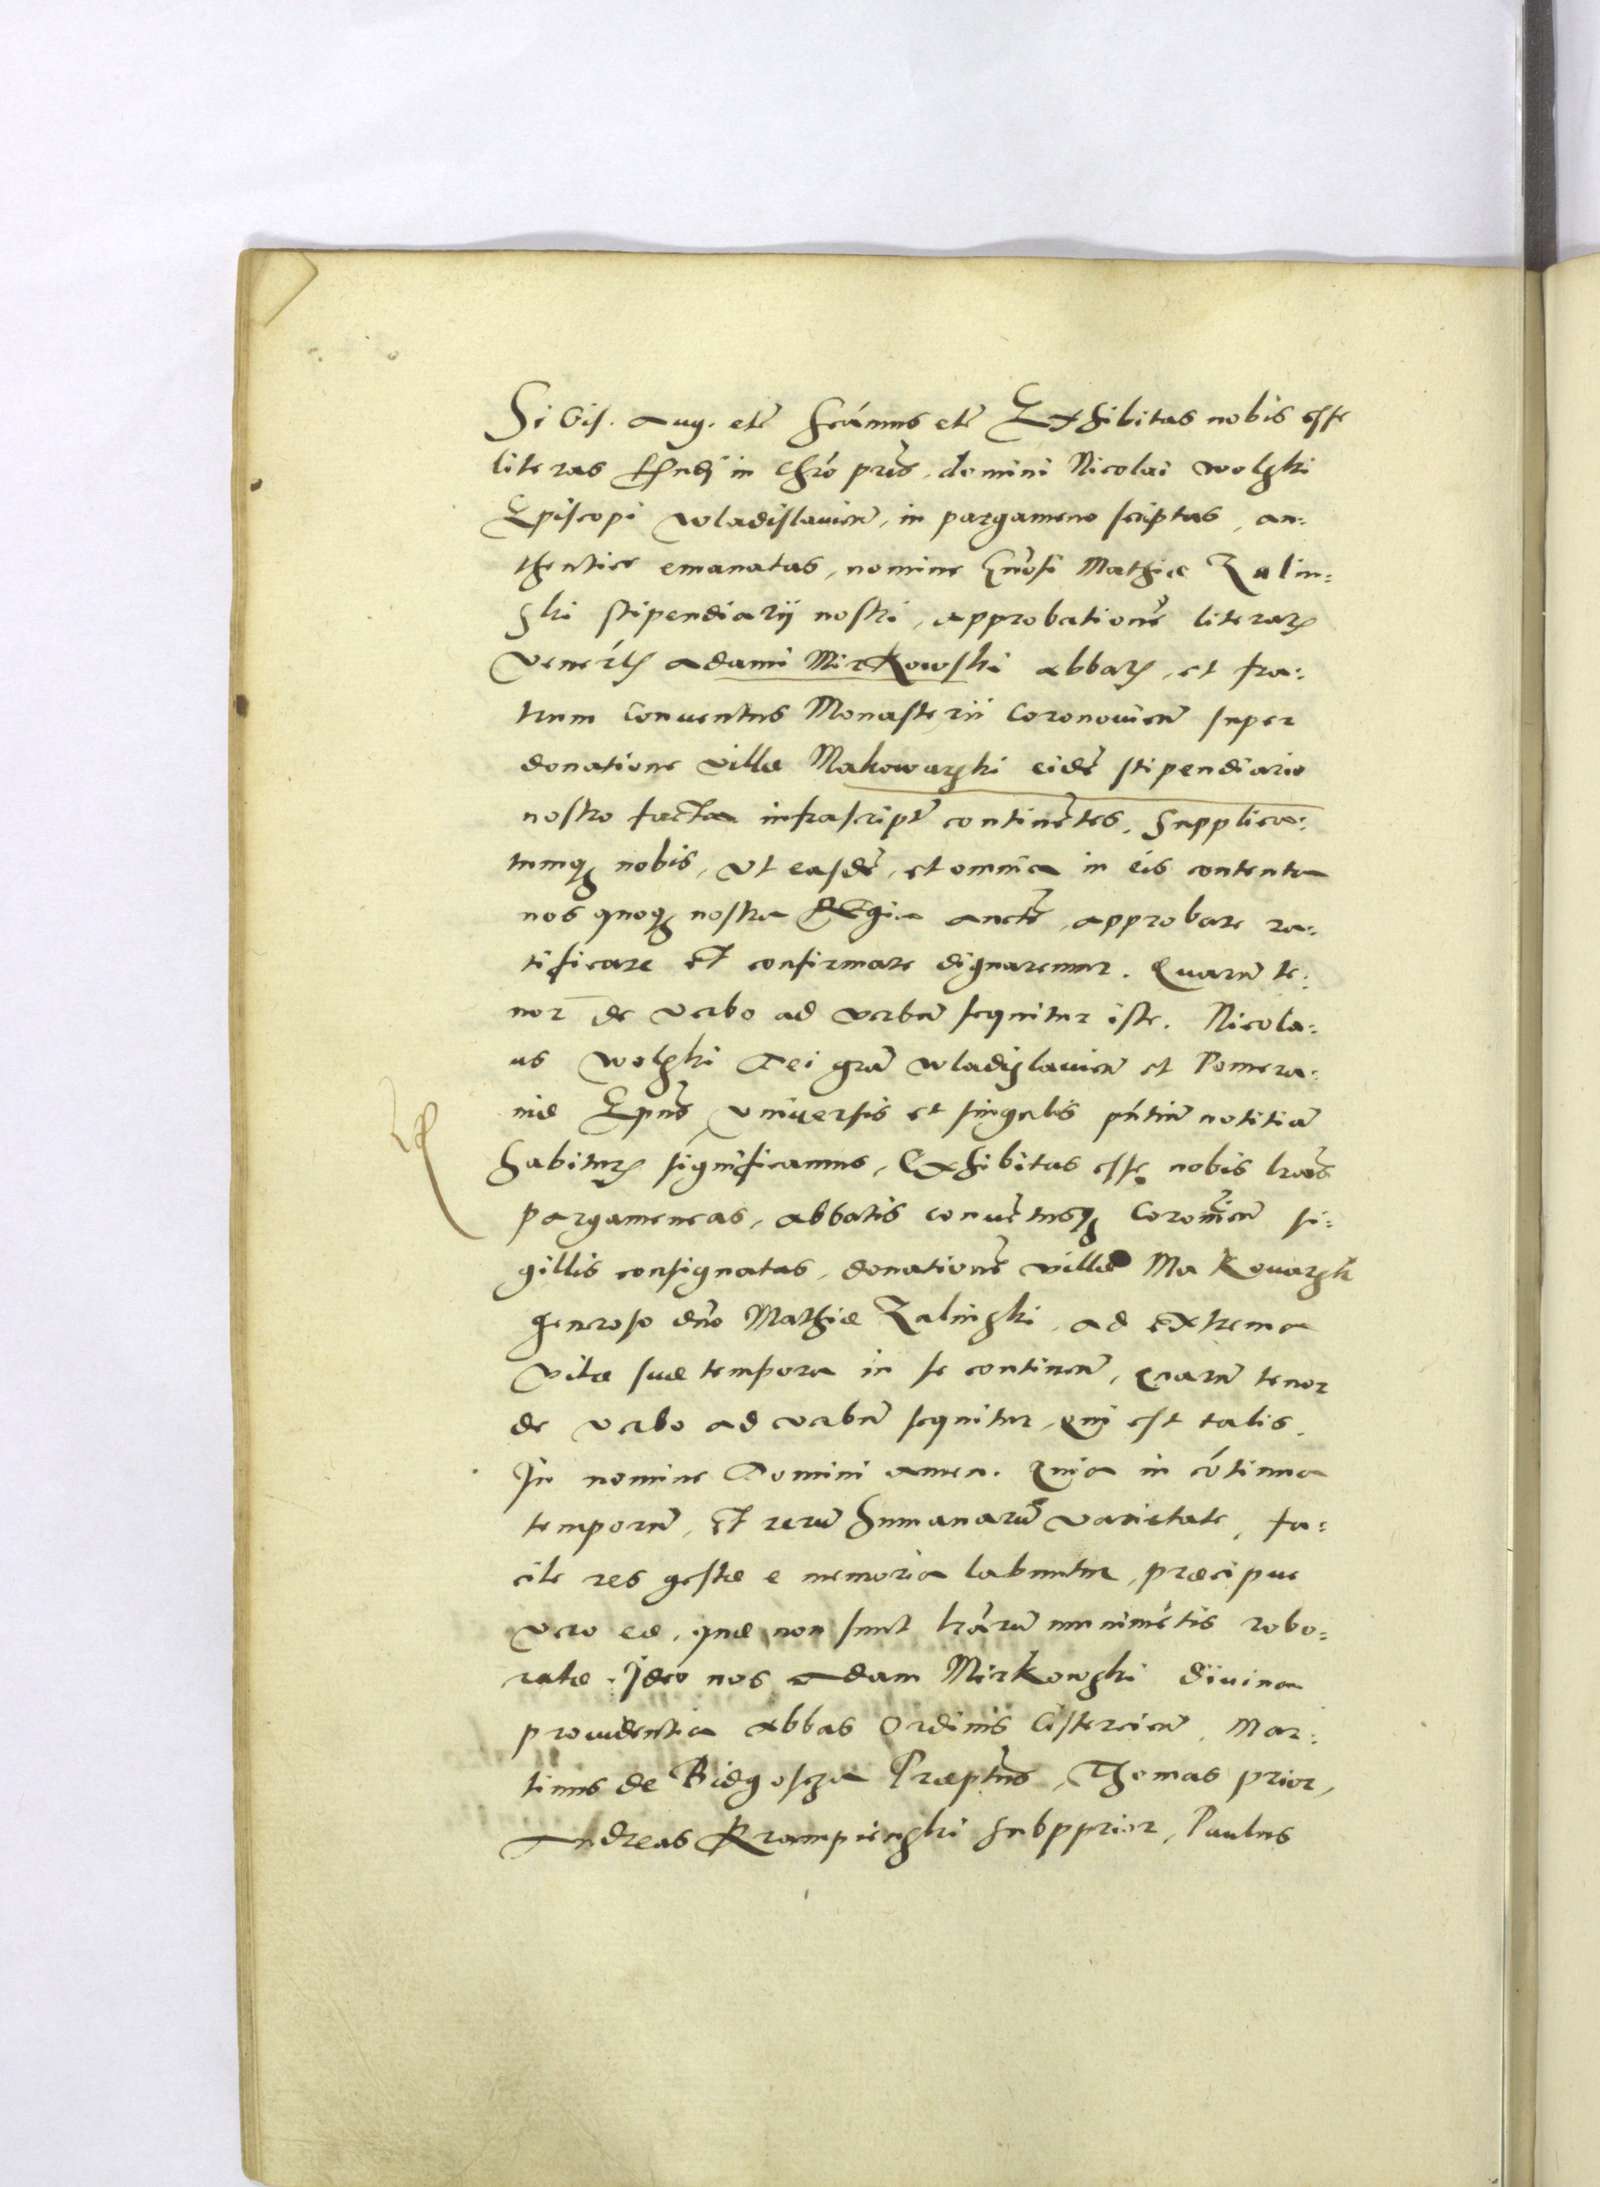 Sigis. Aug. etc̃ scãmus etc̃ Exhibitas nobis esse
literas Rndi in Chro pris. domini Nicolai wolski
Episcopi wladislaviens̃, in pargameno scriptas, au:
thentice emanatas, nomine Gnosi Mathiæ Zalin:
ski stipendiarij nostri, approbationẽ literarꝝ
Venerlꝫ Adami Mirkowski abbatꝫ, et fra:
trum Conuentus Monasterii Coronouiens̃ super
donatione villæ Makowarski eidẽ stipendiario
nostro facta infrascript̃ continẽtes. Supplica:
tumqꝫ nobis, vt easdẽ, et omnia in eis contenta
nos quoqꝫ nostra Regia auctẽ, approbare ra:
tificare et confirmare dignaremur. Quarũ te:
nor de verbo ad verbũ sequitur iste. Nicola:
us wolski Dei grã wladislauien̄ et Pomera:
niæ Epũs, vniuersis et singulis pñtiũ notitiã
habiturꝫ significamus, Exhibitas esse nobis lrãs
pargameneas, abbatis conuẽtusqꝫ Coronouien̄ si:
gillis consignatas, donationẽ villæ Makouarsk
generoso dño Mathiæ Zalinski, ad extrema
vitæ suæ tempora in se continen̄, quarũ tenor
de verbo ad verbũ sequitur, qui est talis.
In nomine Domini amen. Quia in cõtinua
temporũ, et rerũ humanarũ varietate, fa:
cile res gestæ e memoria labuntur, præcipue
vero eæ, quæ non sunt lrãrũ munimẽtis robo:
ratæ. Ideo nos Adam Mirkowski diuina
prouidentia abbas Ordinis Cistercien̄, Mar:
tinus de Bidgoscza Præptũs, Thomas prior,
Andreas Krampienski subpprior, Paulus